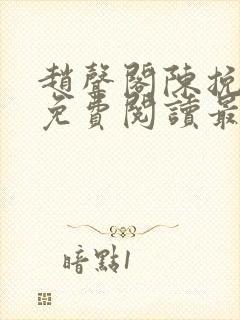 趙聲閣陳挽
免費閱讀最
暗點1